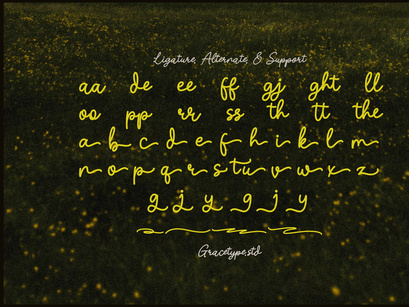 Ligature, Alternate, & Support
aa de ee ff gj ght ll
oo pp rr ss th tt the
a b c d e f h i k l m
n o p q r s t u v w x z
g j y g j y
Gracetype.std